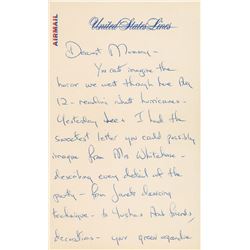 AIRMAIL
United States Lines
Dearest Mummy -
You can't imagine the
horror we went through here Aug
12 - reading about hurricanes -
Yesterday Lee & I had the
sweetest letter you could possibly
imagine from Mrs Whitehouse -
describing every detail of the
party - from Janet's dancing
technique - to Yusha's Arab friends,
decorations - your green organdie